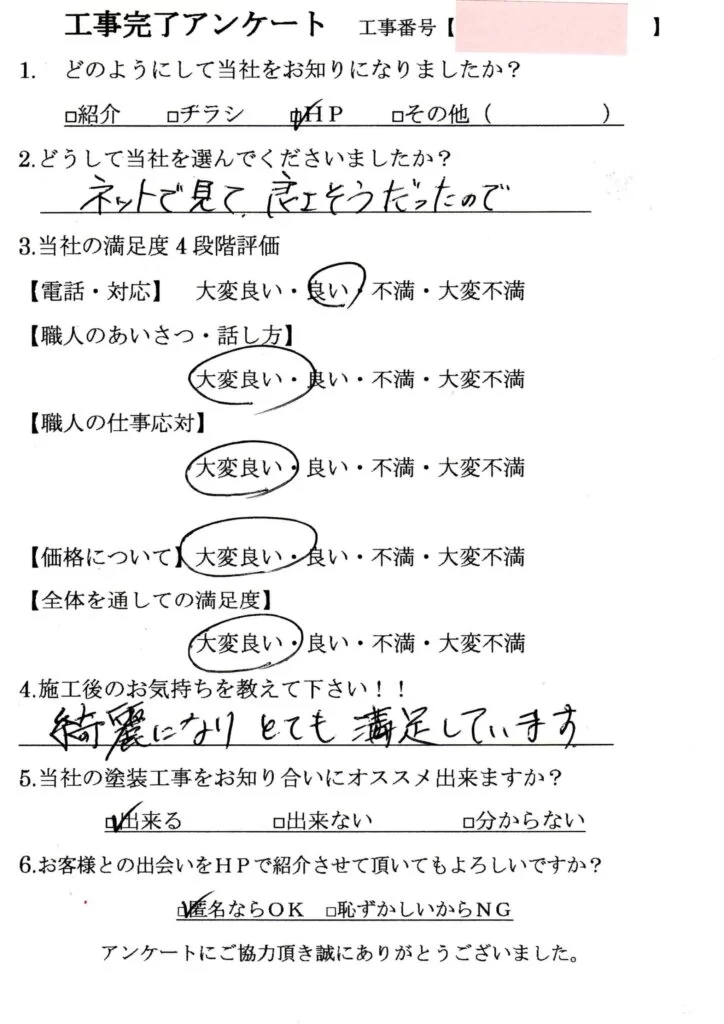 工事完了アンケート 工事番号【 】
1. どのようにして当社をお知りになりましたか？
□紹介 □チラシ ☑HP □その他（ ）
2.どうして当社を選んでくださいましたか？
ネットで見て、良さそうだったので
3.当社の満足度４段階評価
【電話・対応】 大変良い・良い・不満・大変不満
【職人のあいさつ・話し方】
大変良い・良い・不満・大変不満
【職人の仕事応対】
大変良い・良い・不満・大変不満
【価格について】 大変良い・良い・不満・大変不満
【全体を通しての満足度】
大変良い・良い・不満・大変不満
4.施工後のお気持ちを教えて下さい！！
綺麗になりとても満足しています
5.当社の塗装工事をお知り合いにオススメ出来ますか？
☑出来る □出来ない □分からない
6.お客様との出会いをＨＰで紹介させて頂いてもよろしいですか？
☑匿名ならＯＫ □恥ずかしいからＮＧ
アンケートにご協力頂き誠にありがとうございました。